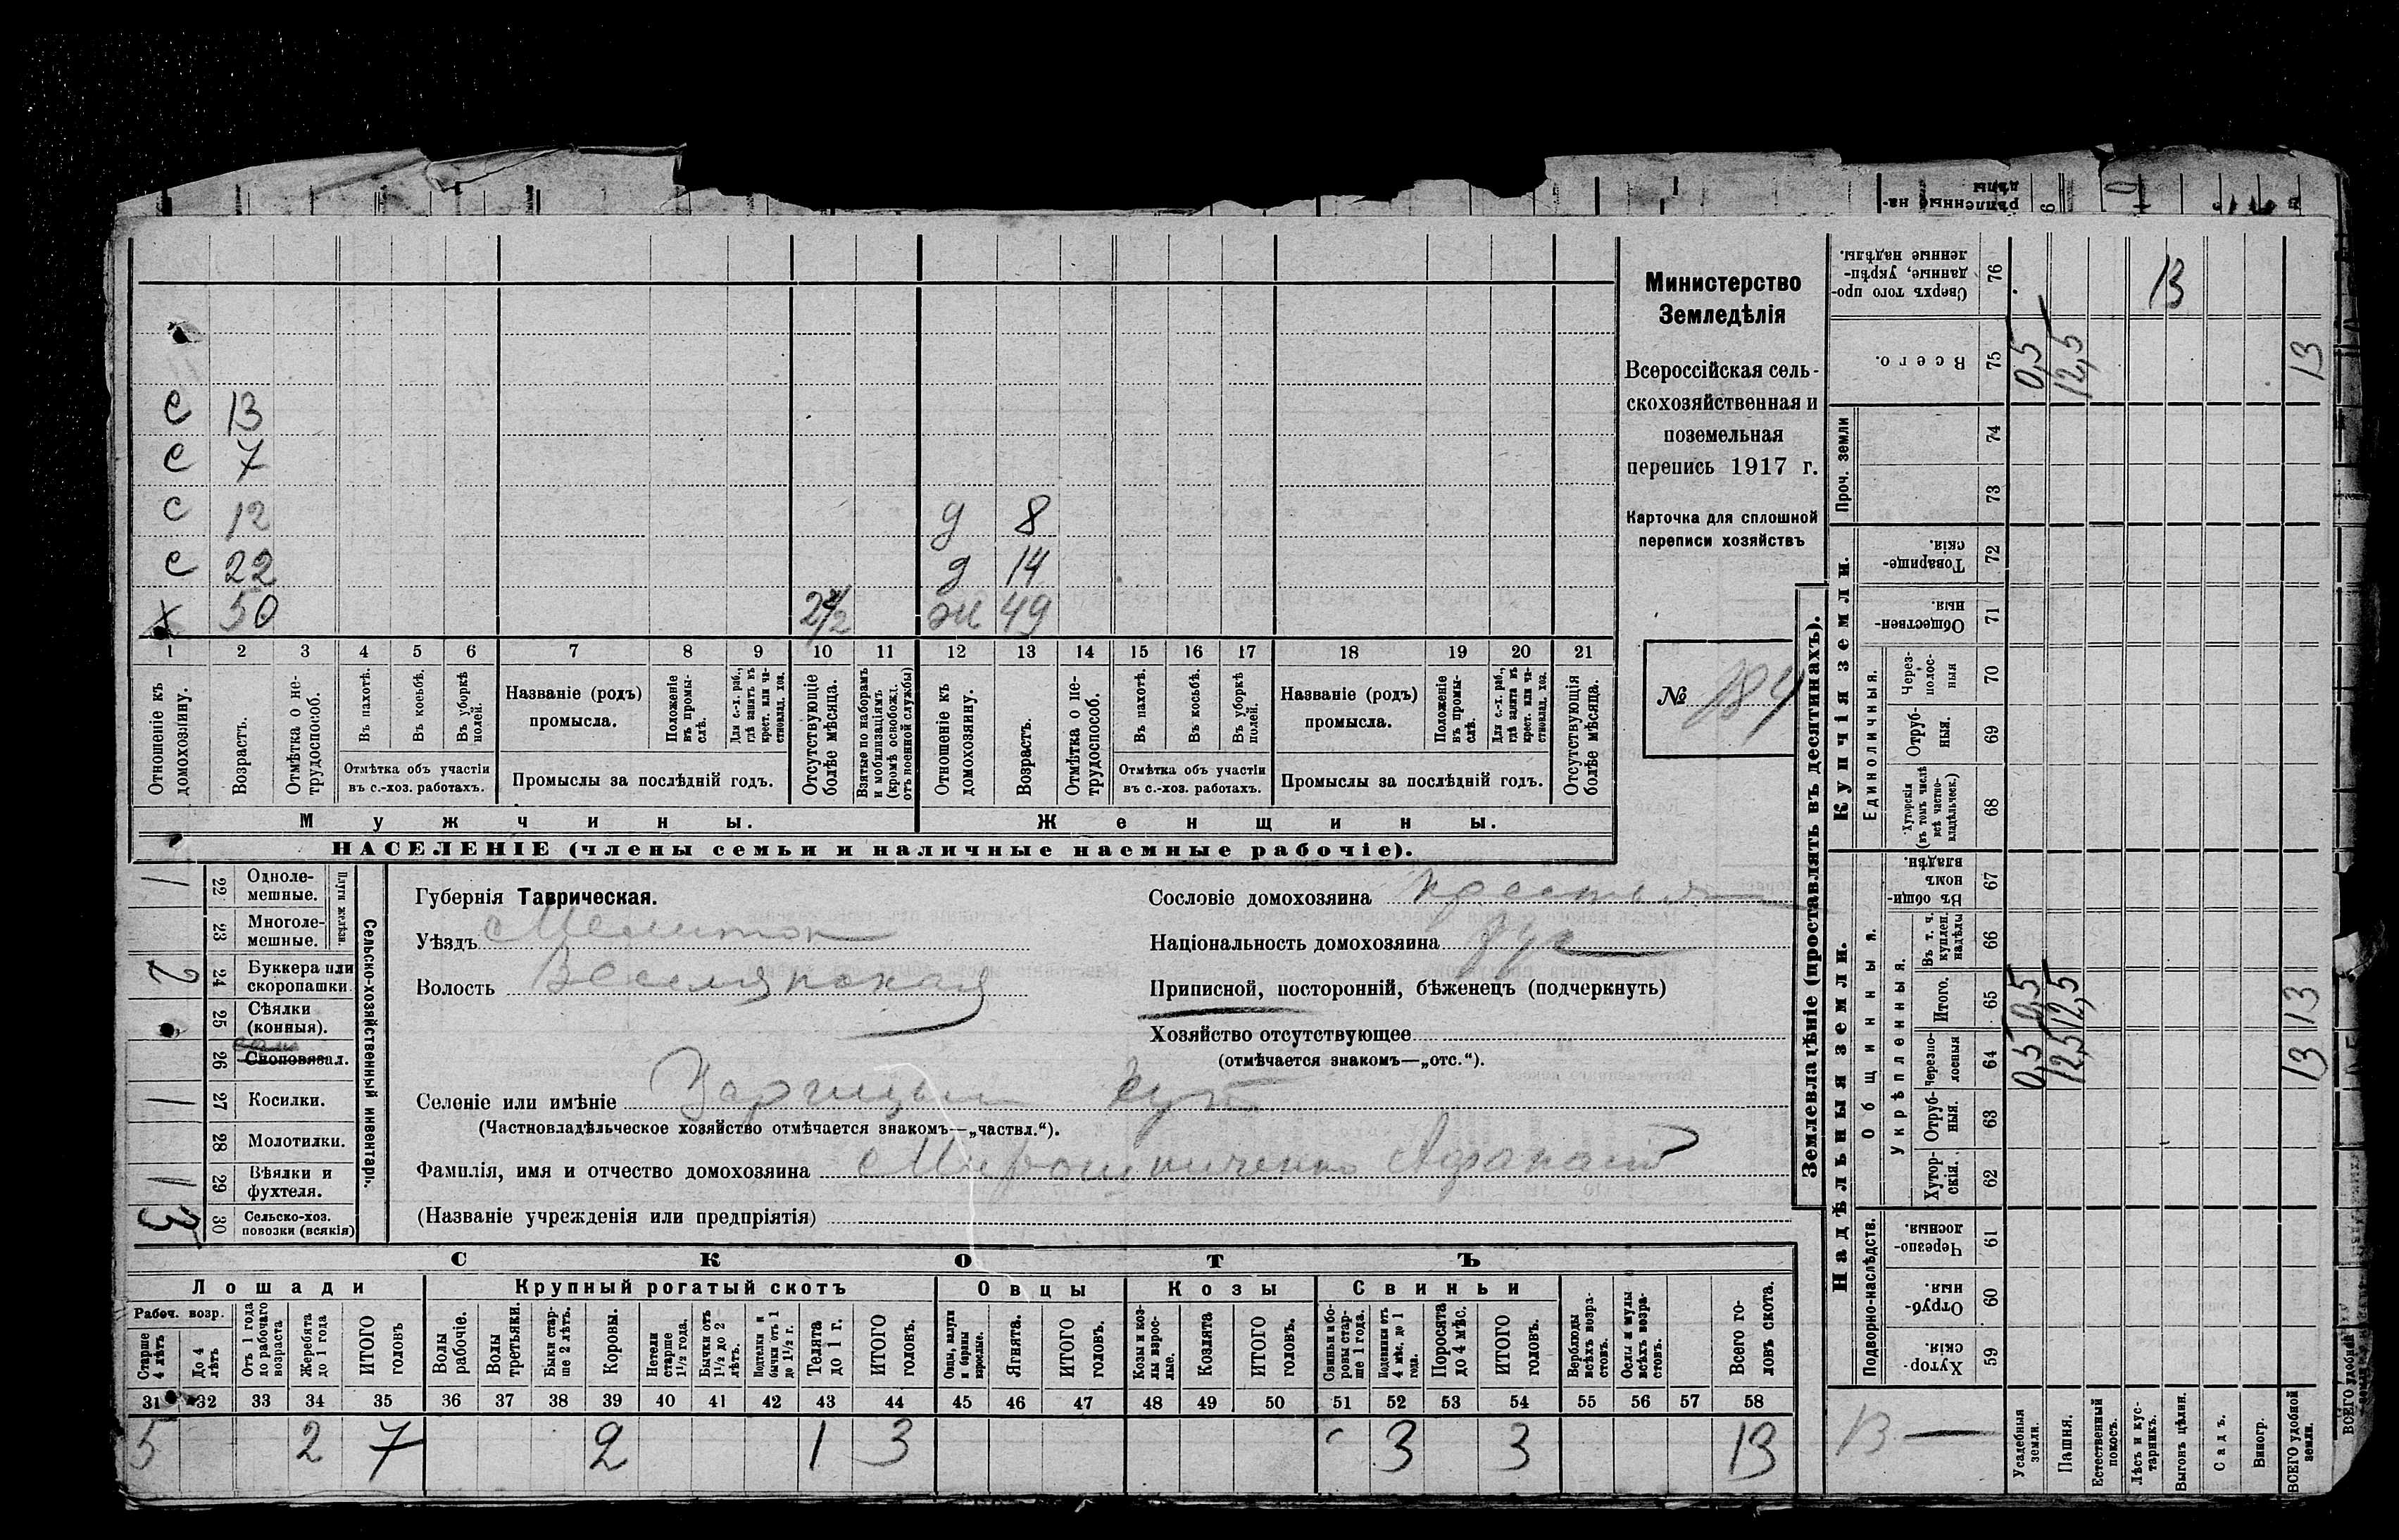 С 13
С 7
С 12 д 8
С 22 д 14
х 50 2/2 ж 49
1 2 3 4 5 6 7 8 9 10 11 12 13 14 15 16 17 18 19 20 21
Отношеніе къ домохозяину.
Возрастъ.
Отмѣтка о не-трудоспособ.
Въ пахотѣ.
Въ косьбѣ.
Въ уборкѣ полей.
Отмѣтка объ участіи въ с.-хоз. работахъ.
Названіе (родъ) промысла.
Положеніе въ промы-слѣ.
Для с.-х. раб., гдѣ занятъ въ крест. или ча-стновлад. хоз.
Промыслы за послѣдній годъ.
Отсутствующіе болѣе мѣсяца.
Взятые по наборамъ и мобилизаціямъ (кромѣ освобожд. отъ военной службы)
Отношеніе къ домохозяину.
Возрастъ.
Отмѣтка о не-трудоспособ.
Въ пахотѣ.
Въ косьбѣ.
Въ уборкѣ полей.
Отмѣтка объ участіи въ с.-хоз. работахъ.
Названіе (родъ) промысла.
Положеніе въ промы-слѣ.
Для с.-х. раб., гдѣ занята въ крест. или ча-стновлад. хоз.
Промыслы за послѣдній годъ.
Отсутствующія болѣе мѣсяца.
Мужчины.
Женщины.
НАСЕЛЕНІЕ (члены семьи и наличные наемные рабочіе).
Министерство
Земледѣлія
Всероссійская сель-
скохозяйственная и
поземельная
перепись 1917 г.
Карточка для сплошной
переписи хозяйствъ
№ 184
Сельско-хозяйственный инвентарь.
Плуги желѣзн.
1 22 Одноле-мешные.
23 Многоле-мешные.
2 24 Буккера или скоропашки
25 Сѣялки (конныя).
26 Сноповязал.
1 27 Косилки.
28 Молотилки.
1 29 Вѣялки и фухтеля.
3 30 Сельско-хоз. повозки (всякія)
Губернія Таврическая.
Уѣздъ Мелитоп
Волость Веселянская
Сословіе домохозяина крестья
Національность домохозяина рус
Приписной, посторонній, бѣженецъ (подчеркнуть)
Хозяйство отсутствующее
(отмѣчается знакомъ—„отс.“).
Селеніе или имѣніе Зарицын Кут
(Частновладѣльческое хозяйство отмѣчается знакомъ—„частвл.“).
Фамилія, имя и отчество домохозяина Мирошниченко Афанасій
(Названіе учрежденія или предпріятія)
СКОТЪ
Лошади
Крупный рогатый скотъ
Овцы
Козы
Свиньи
Рабоч. возр.
Старше 4 лѣтъ
До 4 лѣтъ
Отъ 1 года до рабочаго возраста
Жеребята до 1 года
ИТОГО головъ
Волы рабочіе.
Волы третьяки.
Быки стар-ше 2 лѣтъ.
Коровы.
Нетели старше 1½ года.
Бычки отъ 1½ до 2 лѣтъ.
Подтелки и бычки отъ 1 до 1½ г.
Телята до 1 г.
ИТОГО головъ.
Овцы, валухи и бараны взрослые.
Ягнята.
ИТОГО головъ.
Козы и коз-лы взрос-лые.
Козлята
ИТОГО головъ.
Свиньи и бо-ровы стар-ше 1 года.
Подсвинки отъ 4 мѣс. до 1 года.
Поросята до 4 мѣс.
ИТОГО головъ.
Верблюды всѣхъ возра-стовъ.
Ослы и мулы всѣхъ возра-стовъ.
Всего го-ловъ скота.
31 32 33 34 35 36 37 38 39 40 41 42 43 44 45 46 47 48 49 50 51 52 53 54 55 56 57 58
5 2 7 2 1 3 3 3 13
Землевладѣніе (проставлять въ десятинахъ).
Купчія земли.
Надѣльныя земли.
Проч. земли
Единоличныя.
Общинныя.
Укрѣпленныя.
Подворно-наслѣдств.
Сверхъ того про-данные, укрѣп-ленные надѣлы. 76 13
Всего. 75 0,5 12,5 13
74
73
Товарище-скія. 72
Обществен-ныя. 71
Через-полос-ныя 70
Отруб-ныя. 69
Хуторскія (въ томъ числѣ всѣ частно-владѣльческ.) 68
Въ общи-номъ владѣн. 67
Въ т. ч. куплен. надѣлы 66
Итого. 65 0,5 12,5 13
Черезпо-лосныя 64 0,5 12,5 13
Отруб-ныя. 63
Хутор-скія. 62
Черезпо-лосныя. 61
Отруб-ныя. 60
Хутор-скія. 59
13
Усадебныя земли.
Пашня.
Естественный покосъ.
Лѣсъ и кус-тарникъ.
Выгонъ цѣлин.
Садъ.
Виногр.
ВСЕГО удобной земли.
ВСЕГО удобной